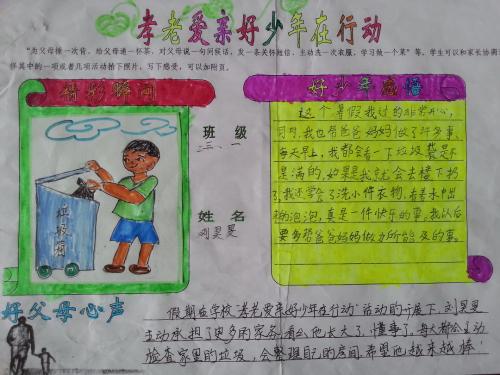 孝老爱亲好少年在行动
"为父母捶一次背、给父母递一杯茶、对父母说一句问候话、发一条关怀短信、主动洗一次衣服、学习做一个菜"等，学生可以和家长协调
择其中的一项或者几项活动拍下照片，写下感受，可以如附页。
精彩瞬间
垃圾箱
班 级
三、一
姓 名
刘昊旻
好少年感悟
这个暑假我过的非常开心，
同时，我也帮爸爸妈妈做了许多事，
每天早上，我都会看一下垃圾袋是不
是满的，如果是我就会去楼下扔
了，我还学会了洗小件衣物，看着水中出
来的泡泡，真是一件快乐的事，我以后
要多帮爸爸妈妈做力所能及的事。
好父母心声
假期在学校"孝老爱亲好少年在行动"活动的开展下，刘昊旻
主动承担了更多的家务，看么他长大了、懂事了，每天都会主动
检查家里的垃圾，会整理自己的房间，希望他越来越棒！